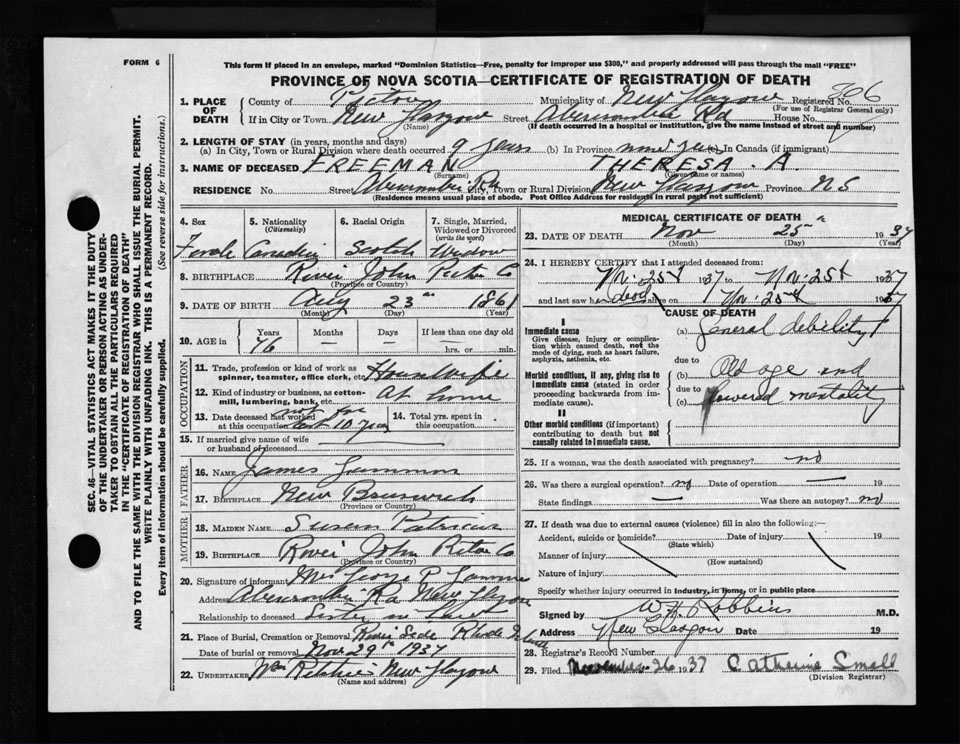 FORM 6
This form if placed in an envelope, marked "Dominion Statistics—Free, penalty for improper use $300," and properly addressed will pass through the mail "FREE"
PROVINCE OF NOVA SCOTIA—CERTIFICATE OF REGISTRATION OF DEATH
SEC. 46—VITAL STATISTICS ACT MAKES IT THE DUTY
OF THE UNDERTAKER OR PERSON ACTING AS UNDER-
TAKER TO OBTAIN ALL THE PARTICULARS REQUIRED
IN THE "CERTIFICATE OF REGISTRATION OF DEATH"
AND TO FILE THE SAME WITH THE DIVISION REGISTRAR WHO SHALL ISSUE THE BURIAL PERMIT.
WRITE PLAINLY WITH UNFADING INK. THIS IS A PERMANENT RECORD.
Every item of information should be carefully supplied. (See reverse side for instructions.)
1. PLACE OF DEATH County of Pictou Municipality of New Glasgow Registered No. 866
(For use of Registrar General only)
If in City or Town New Glasgow Street Abercrombie Rd House No.
(Name) (If death occurred in a hospital or institution, give the name instead of street and number)
2. LENGTH OF STAY (in years, months and days)
(a) In City, Town or Rural Division where death occurred 9 years (b) In Province (c) In Canada (if immigrant)
3. NAME OF DECEASED FREEMAN THERESA. A.
(Surname) (Given name or names)
RESIDENCE No. Street Abercrombie Rd City, Town or Rural Division New Glasgow Province N S
(Residence means usual place of abode. Post Office Address for residents in rural parts not sufficient)
4. Sex 5. Nationality 6. Racial Origin 7. Single, Married,
(Citizenship) Widowed or Divorced
(write the word)
Female Canadian Scotch Widow
8. BIRTHPLACE River John Pictou Co
(Province or Country)
9. DATE OF BIRTH Aug 23 1861
(Month) (Day) (Year)
10. AGE in Years Months Days If less than one day old
76 — — hrs. or min.
OCCUPATION
11. Trade, profession or kind of work as
spinner, teamster, office clerk, etc. Housewife
12. Kind of industry or business, as cotton-
mill, lumbering, bank, etc. At home
13. Date deceased last worked
at this occupation not for last 10 years
14. Total yrs. spent in
this occupation
15. If married give name of wife
or husband of deceased
FATHER
16. NAME James Lammon
17. BIRTHPLACE New Brunswick
(Province or Country)
MOTHER
18. MAIDEN NAME Susan Patriquin
19. BIRTHPLACE River John Pictou Co
(Province or Country)
20. Signature of informant Mrs George P.
Address Abercrombie Rd New Glasgow
Relationship to deceased Sister in Law
21. Place of Burial, Cremation or Removal River Side Rhode Island
Date of burial or removal Nov 29th 1937
22. UNDERTAKER Wm Ritchie New Glasgow
(Name and address)
MEDICAL CERTIFICATE OF DEATH
23. DATE OF DEATH Nov 25 1937
(Month) (Day) (Year)
24. I HEREBY CERTIFY that I attended deceased from:
Nov. 25th 1937 to Nov. 25th 1937
and last saw her dead alive on Nov. 25th 1937
CAUSE OF DEATH
I
Immediate cause (a) General debility
Give disease, injury or complica-
tion which caused death, not the
mode of dying, such as heart failure,
asphyxia, asthenia, etc.
due to
Morbid conditions, if any, giving rise to
immediate cause (stated in order
proceeding backwards from im-
mediate cause).
(b) Old age and
due to
(c) lowered mentality
II
Other morbid conditions (if important)
contributing to death but not
causally related to immediate cause.
25. If a woman, was the death associated with pregnancy? no
26. Was there a surgical operation? no Date of operation — 19
State findings — Was there an autopsy? no
27. If death was due to external causes (violence) fill in also the following:—
Accident, suicide or homicide? Date of injury 19
(State which)
Manner of injury
(How sustained)
Nature of injury
Specify whether injury occurred in industry, in home, or in public place
Signed by W H Robbins M.D.
Address New Glasgow Date 19
28. Registrar's Record Number
29. Filed November 26 1937 Catherine Small
(Division Registrar)